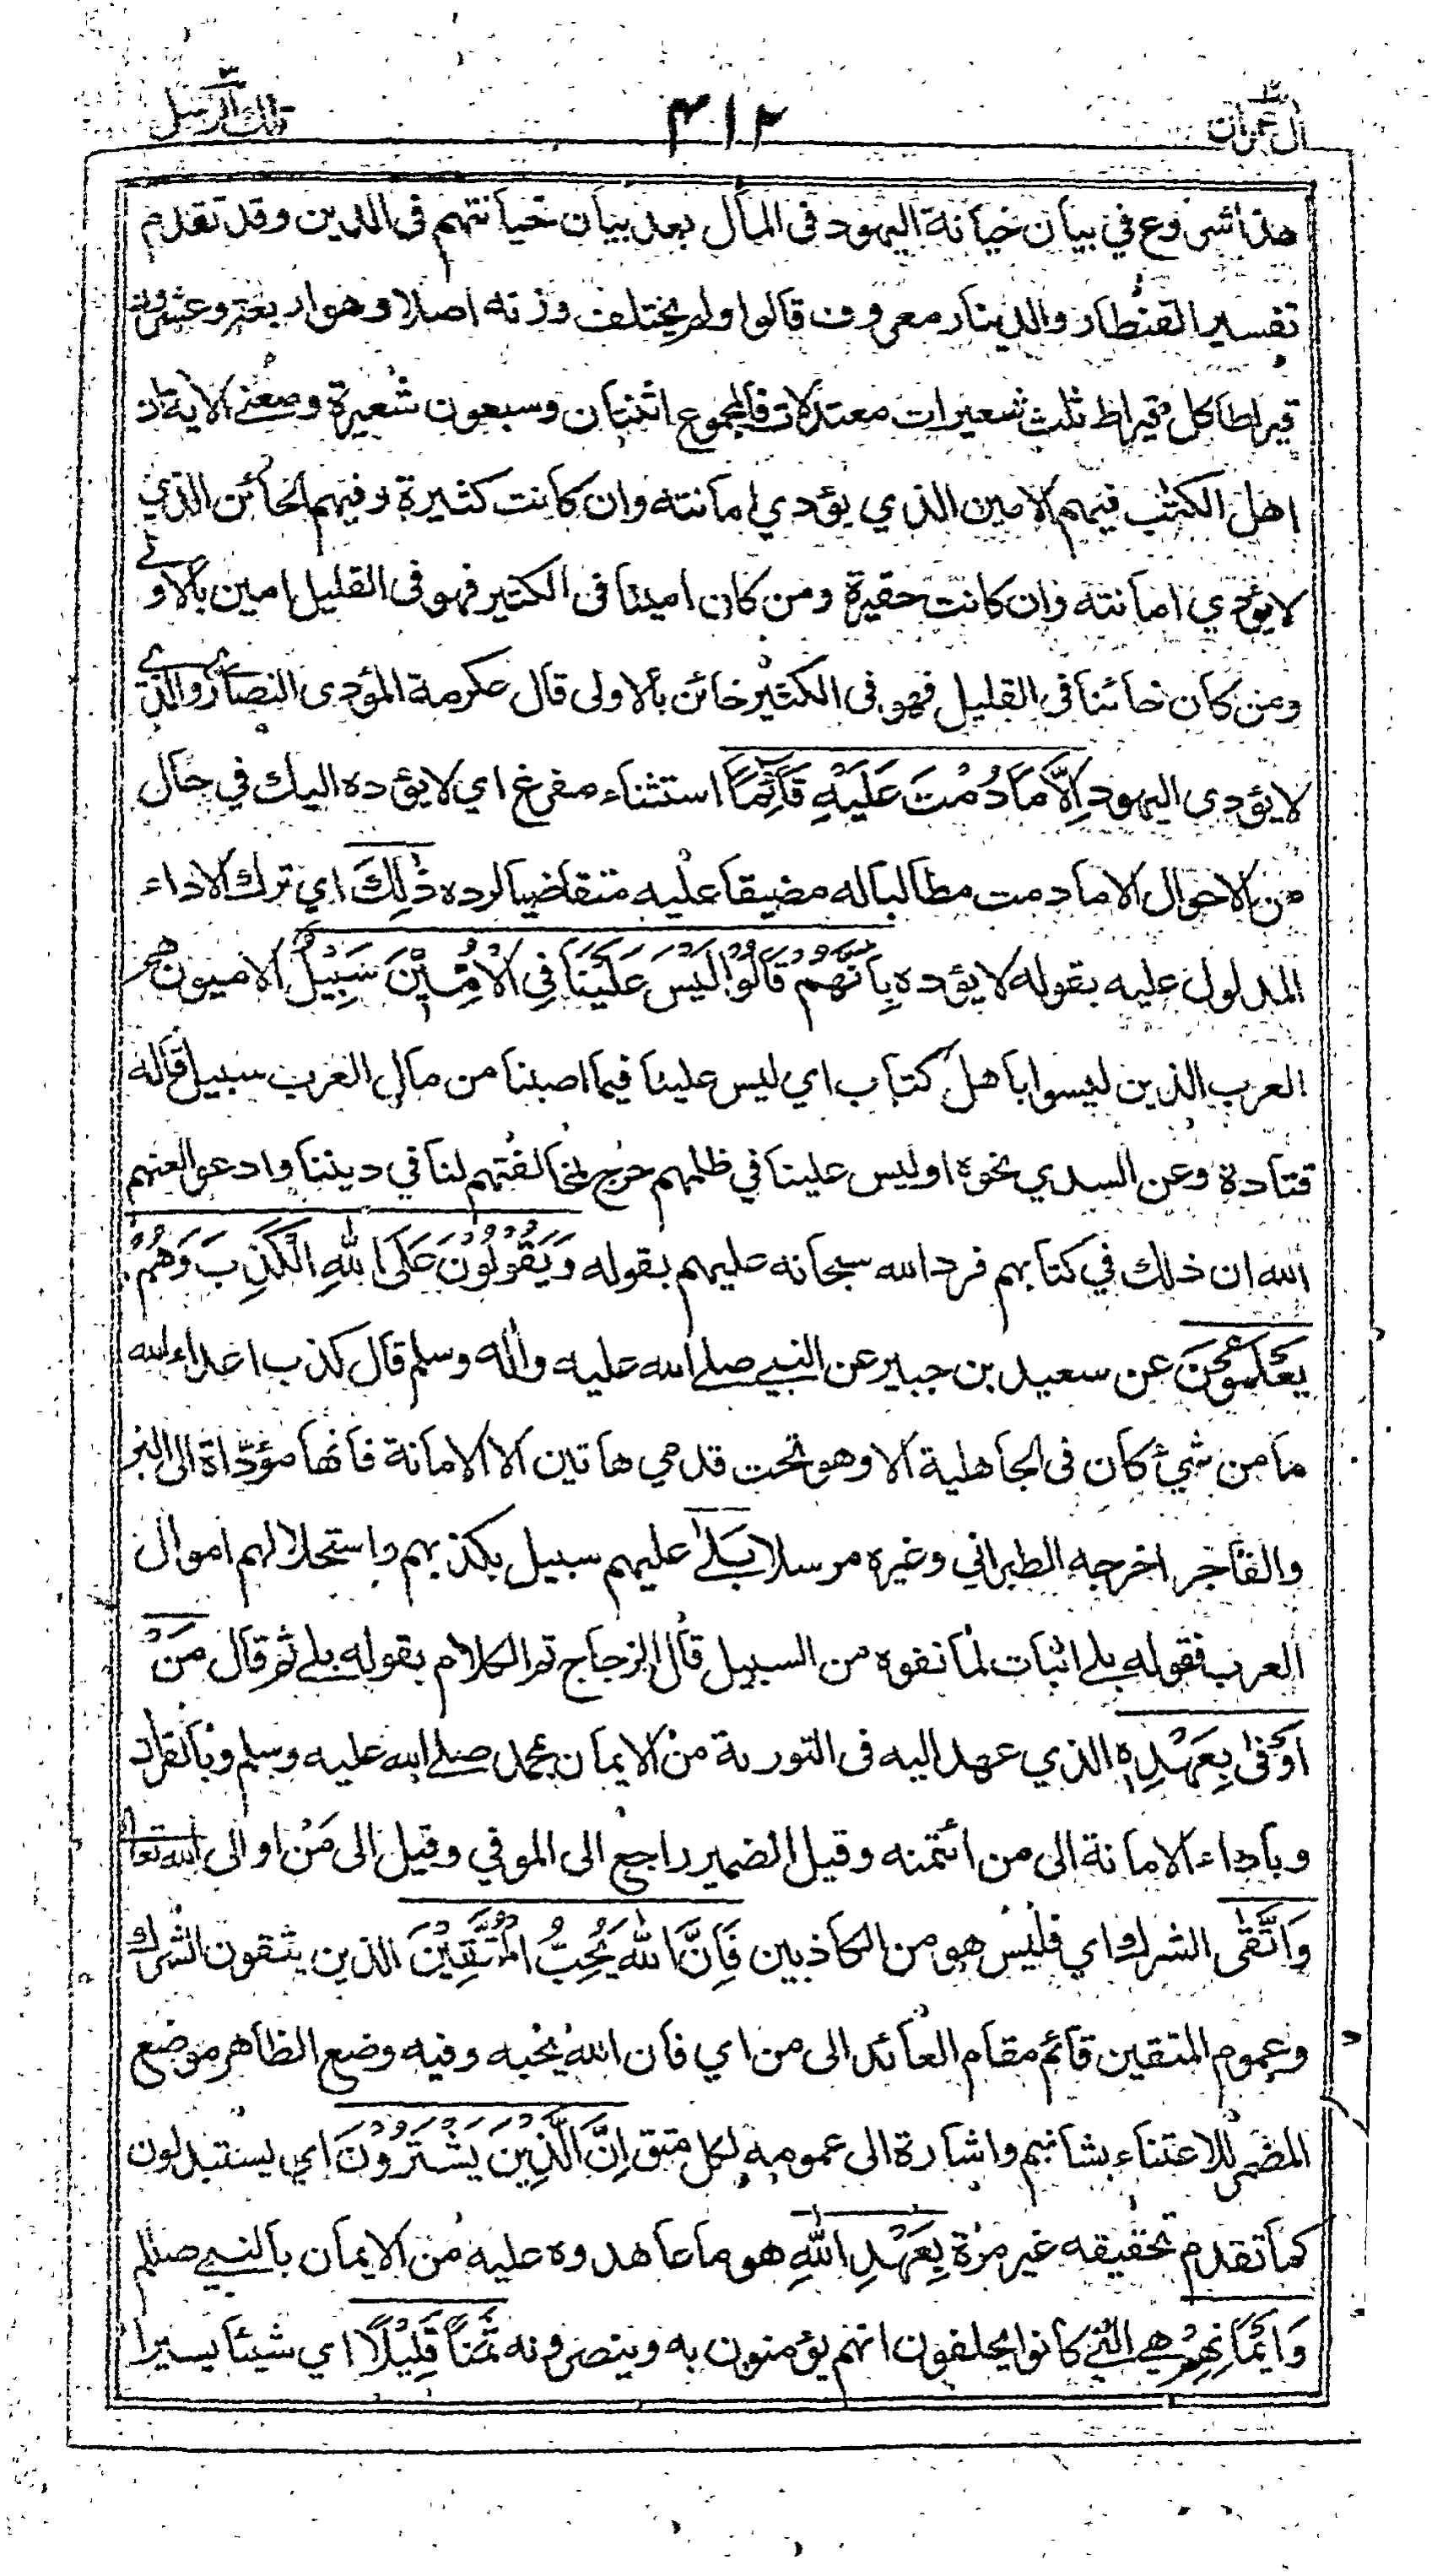 اٰل عمران
۴۱۲
تلك الرسل
هذا شروع في بيان خيانة اليهود في المال بعد بيان خيانتهم في الدين وقد تقدم
تفسير القنطار والدينار معروف قالوا ولم يختلف وزنه اصلا وهو اربعة وعشرون
قيراطا كل قيراط ثلث شعيرات معتدلات فالمجموع اثنتان وسبعون شعيرة ومعنے الاية ان
اهل الكتٰب فيهم الامين الذي يؤدي امانته وان كانت كثيرة وفيهم الخائن الذي
لا يؤدي امانته وان كانت حقيرة ومن كان امينا في الكثير فهو في القليل امين بالاولے
ومن كان خائنا في القليل فهو في الكثير خائن بالاولى قال عكرمة المؤدى النصارى والذي
لا يؤدى اليهود اِلَّا مَا دُمْتَ عَلَيْهِ قَآئِمًا استثناء مفرغ اي لا يؤده اليك في حال
من الاحوال الا ما دمت مطالبا له مضيقا عليه متقاضيا لرده ذٰلِكَ اي ترك الاداء
المدلول عليه بقوله لا يؤده بِاَنَّهُمْ قَالُوْا لَيْسَ عَلَيْنَا فِي الْاُمِّيّٖنَ سَبِيْلٌ الاميون هم
العرب الذين ليسوا باهل كتاب اي ليس علينا فيما اصبنا من مال العرب سبيل قاله
قتادة وعن السدي نحوه او ليس علينا في ظلمهم حرج لمخالفتهم لنا في ديننا وادعوا لعنهم
الله ان ذلك في كتابهم فرد الله سبحانه عليهم بقوله وَيَقُوْلُوْنَ عَلَى اللهِ الْكَذِبَ وَهُمْ
يَعْلَمُوْنَ عن سعيد بن جبير عن النبي صلے الله عليه واٰله وسلم قال كذب اعداء الله
ما من شيء كان في الجاهلية الا وهو تحت قدمي هاتين الا الامانة فانها مؤدّاة الى البر
والفاجر اخرجه الطبراني وغيره مرسلا بَلٰے عليهم سبيل بكذبهم واستحلالهم اموال
العرب فقوله بلے اثبات لما نفوه من السبيل قال الزجاج تم الكلام بقوله بلے ثم قال مَنْ
اَوْفٰى بِعَهْدِهٖ الذي عهد اليه في التورىة من الايمان بمحمد صلے الله عليه وسلم وبالقراٰن
وباداء الامانة الى من ائتمنه وقيل الضمير راجع الى الموفي وقيل الى مَنْ او الى الله تعالى
وَاتَّقٰى الشرك اي فليس هو من الكاذبين فَاِنَّ اللهَ يُحِبُّ الْمُتَّقِيْنَ الذين يتقون الشرك
وعموم المتقين قائم مقام العائد الى من اي فان الله يحبه وفيه وضع الظاهر موضع
المضمر للاعتناء بشانهم واشارة الى عمومه لكل متق اِنَّ الَّذِيْنَ يَشْتَرُوْنَ اي يستبدلون
كما تقدم تحقيقه غير مرة بِعَهْدِ اللهِ هو ما عاهدوه عليه من الايمان بالنبي صللم
وَاَيْمَانِهِمْ هي التي كانوا يحلفون انهم يؤمنون به وينصرونه ثَمَنًا قَلِيْلًا اي شيئا يسيرا